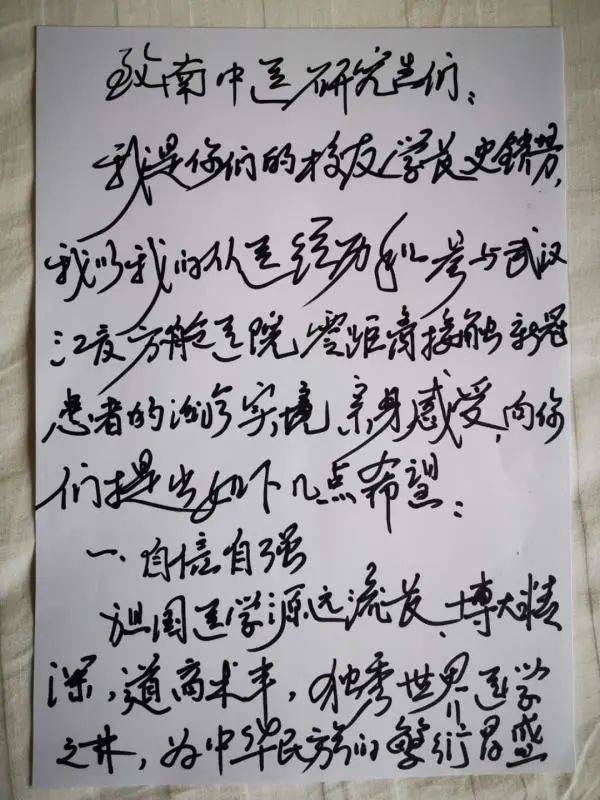 致南中医研究生们：
我是你们的校友学长史锁芳，
我以我的从医经历和参与武汉
江夏方舱医院零距离接触新冠
患者的诊疗实境亲身感受，向你
们提出如下几点希望：
一、自信自强
祖国医学源远流长、博大精
深，道高术丰，独秀世界医学
之林，为中华民族的繁衍昌盛